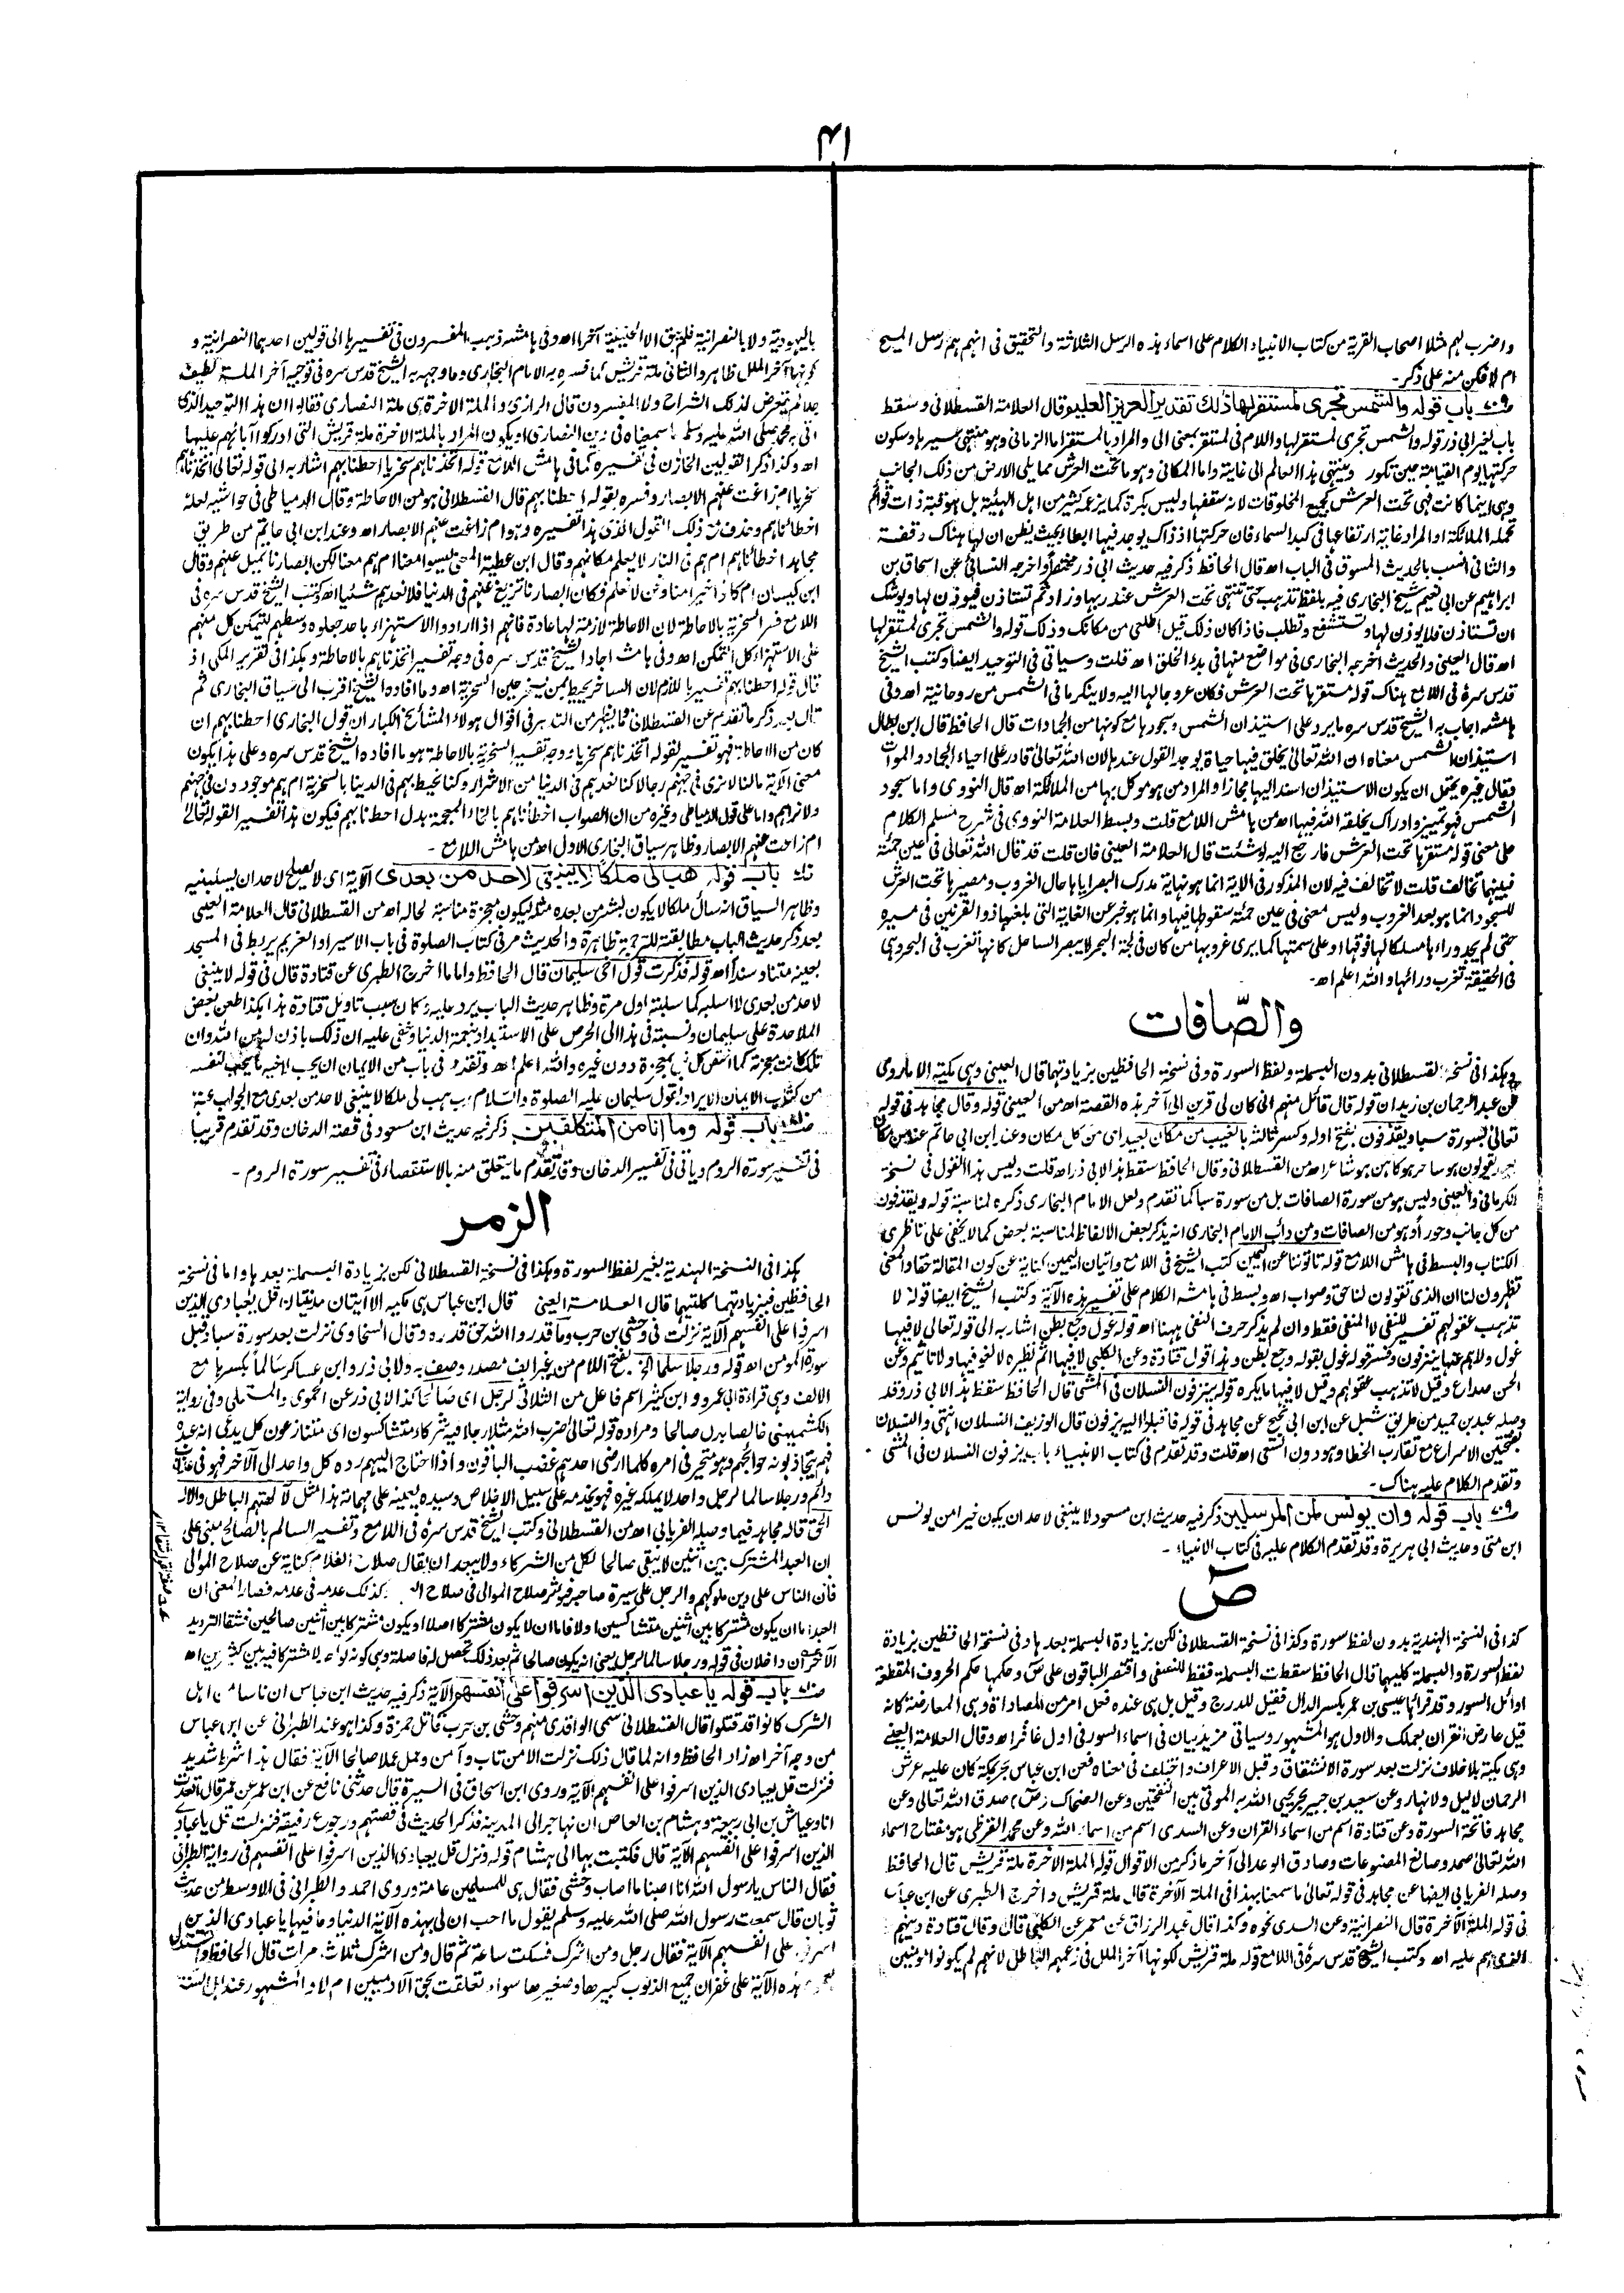 ۴۱
واضرب لہم مثلا اصحاب القریۃ من کتاب الانبیاء الکلام علی اسماء ہذہ الرسل الثلاثۃ والتحقیق فی انہم ہم رسل المسیح
ام لا فکن منہ علی ذکر۔
باب قولہ والشمس تجری لمستقر لہا ذلک تقدیر العزیز العلیم وقال العلامۃ القسطلانی وسقط
باب لغیر ابی ذر قولہ والشمس تجری لمستقر لہا واللام فی لمستقر بمعنی الی والمراد بالمستقر اما الزمانی وہو منتہی سیرہا وسکون
حرکتہا یوم القیامۃ حین تکور وینتہی ہذا العالم الی غایۃ واما المکانی وہو ما تحت العرش مما یلی الارض من ذلک الجانب
وہی اینما کانت فہی تحت العرش کجمیع المخلوقات لانہ سقفہا ولیس بکرۃ کما یزعمہ کثیر من اہل الہیئۃ بل ہو قبۃ ذات قوائم
تحملہ الملائکۃ او المراد غایۃ ارتفاعہا فی کبد السماء فان حرکتہا اذ ذاک یوجد فیہا ابطاء بحیث یظن ان لہا ہناک وقفۃ
والثانی انسب بالحدیث المسوق فی الباب اھ قال الحافظ ذکر فیہ حدیث ابی ذر مختصرا واخرجہ النسائی عن اسحاق بن
ابراہیم عن ابی نعیم شیخ البخاری فیہ بلفظ تذہب حتی تنتہی تحت العرش عند ربہا وزاد ثم تستاذن فیؤذن لہا ویوشک
ان تستاذن فلا یؤذن لہا وتستشفع وتطلب فاذا کان ذلک قیل اطلعی من مکانک وذلک قولہ والشمس تجری لمستقر لہا
اھ قال العینی والحدیث اخرجہ البخاری فی مواضع منہا فی بدء الخلق اھ قلت وسیاتی فی التوحید ایضا وکتب الشیخ
قدس سرہ فی اللامع ہناک قولہ مستقرہا تحت العرش فکان عروجہا لہا الیہ ولا ینکر ما فی الشمس من روحانیۃ اھ وفی
ہامشہ اجاب بہ الشیخ قدس سرہ ما یرد علی استیذان الشمس وسجودہا مع کونہا من الجمادات قال الحافظ قال ابن بطال
استیذان الشمس معناہ ان اللہ تعالی یخلق فیہا حیاۃ یوجد القول عندہا لان اللہ تعالی قادر علی احیاء الجماد والموات
وقال غیرہ یحتمل ان یکون الاستیذان اسند الیہا مجازا والمراد من ہو موکل بہا من الملائکۃ اھ قال النووی واما سجود
الشمس فہو بتمییز وادراک یخلقہ اللہ فیہا اھ من ہامش اللامع قلت وبسط العلامۃ النووی فی شرح مسلم الکلام
علی معنی قولہ مستقرہا تحت العرش فارجع الیہ لو شئت قال العلامۃ العینی فان قلت قد قال اللہ تعالی فی عین حمئۃ
فبینہما تخالف قلت لا تخالف فیہ لان المذکور فی الایۃ انما ہو نہایۃ مدرک البصر ایاہا حال الغروب ومصیرہا تحت العرش
للسجود انما ہو بعد الغروب ولیس معنی فی عین حمئۃ سقوطہا فیہا وانما ہو خبر عن الغایۃ التی بلغہا ذو القرنین فی مسیرہ
حتی لم یجد وراءہا مسلکا لہا فوقہا او علی سمتہا کما یری غروبہا من کان فی لجۃ البحر لا یبصر الساحل کانہا تغرب فی البحر وہی
فی الحقیقۃ تغرب ورائہا واللہ اعلم اھ۔
والصّافات
وہکذا فی نسخۃ القسطلانی بدون البسملۃ ولفظ السورۃ وفی نسخۃ الحافظین بزیادتہما قال العینی وہی مکیۃ الا ما روی
عن عبد الرحمان بن زید ان قولہ قال قائل منہم انی کان لی قرین الی آخر ہذہ القصۃ اھ من العینی قولہ وقال مجاہد فی قولہ
تعالی بسورۃ سبا ویقذفون بفتح اولہ وکسر ثالثہ بالغیب من مکان بعید ای من کل مکان وعند ابن ابی حاتم عنہ من مکان
بعید یقولون ہو ساحر ہو کاہن ہو شاعر اھ من القسطلانی وقال الحافظ سقط ہذا لابی ذر اھ قلت ولیس ہذا القول فی نسخۃ
الکرمانی والعینی ولیس ہو من سورۃ الصافات بل من سورۃ سبا کما تقدم ولعل الامام البخاری ذکرہ لمناسبۃ قولہ ویقذفون
من کل جانب دحورا وہو من الصافات ومن دأب الامام البخاری انہ یذکر بعض الالفاظ لمناسبۃ بعض کما لا یخفی علی ناظری
الکتاب والبسط فی ہامش اللامع قولہ تاتوننا عن الیمین کتب الشیخ فی اللامع واتیان الیمین کنایۃ عن کون المقالۃ حقا والمعنی
تظہرون لنا ان الذی تقولون لنا حق وصواب اھ وبسط فی ہامشہ الکلام علی تفسیر ہذہ الآیۃ وکتب الشیخ ایضا قولہ لا
تذہب عقولہم تفسیر للنفی لا المنفی فقط وان لم یذکر حرف النفی ہہنا اھ قولہ غول وجع بطن اشار بہ الی قولہ تعالی لا فیہا
غول ولا ہم عنہا ینزفون وفسر قولہ غول بقولہ وجع بطن وہذا قول قتادۃ وعن الکلبی لا فیہا اثم نظیرہ لا لغو فیہا ولا تاثیم وعن
الحسن صداع وقیل لا تذہب عقولہم وقیل لا فیہا ما یکرہ قولہ یزفون النسلان فی المشی قال الحافظ سقط ہذا لابی ذر وقد
وصلہ عبد بن حمید من طریق شبل عن ابن ابی نجیح عن مجاہد فی قولہ فاقبلوا الیہ یزفون قال الوزیف النسلان انتہی والنسلان
بفتحتین الاسراع مع تقارب الخطا وہو دون السعی اھ قلت وقد تقدم فی کتاب الانبیاء باب یزفون النسلان فی المشی
وتقدم الکلام علیہ ہناک۔
باب قولہ وان یونس لمن المرسلین ذکر فیہ حدیث ابن مسعود لا ینبغی لاحد ان یکون خیرا من یونس
ابن متی وحدیث ابی ہریرۃ وقد تقدم الکلام علیہ فی کتاب الانبیاء۔
صٓ
کذا فی النسخۃ الہندیۃ بدون لفظ سورۃ وکذا فی نسخۃ القسطلانی لکن بزیادۃ البسملۃ بعدہا وفی نسخۃ الحافظین بزیادۃ
لفظ السورۃ والبسملۃ کلیہما قال الحافظ سقطت البسملۃ فقط للنسفی واقتصر الباقون علی ص وحکمہا حکم الحروف المقطعۃ
اوائل السور وقد قرأہا عیسی بن عمر بکسر الدال فقیل للدرج وقیل بل ہی عندہ فعل امر من المصاداۃ وہی المعارضۃ کانہ
قیل عارض القران بعملک والاول ہو المشہور وسیاتی مزید بیان فی اسماء السور فی اول غافر اھ وقال العلامۃ العینی
وہی مکیۃ بلا خلاف نزلت بعد سورۃ الانشقاق وقبل الاعراف واختلف فی معناہ فعن ابن عباس بحر بمکۃ کان علیہ عرش
الرحمان لا لیل ولا نہار وعن سعید بن جبیر بحر یحیی اللہ بہ الموتی بین النفختین وعن الضحاک (ص) صدق اللہ تعالی وعن
مجاہد فاتحۃ السورۃ وعن قتادۃ اسم من اسماء القران وعن السدی اسم من اسماء اللہ وعن محمد القرظی ہو مفتاح اسماء
اللہ تعالی صمد وصانع المصنوعات وصادق الوعد الی آخر ما ذکر من الاقوال قولہ الملۃ الآخرۃ ملۃ قریش قال الحافظ
وصلہ الفریابی ایضا عن مجاہد فی قولہ تعالی ما سمعنا بہذا فی الملۃ الآخرۃ قال ملۃ قریش واخرج الطبری عن ابن عباس
فی قولہ الملۃ الآخرۃ قال النصرانیۃ وعن السدی نحوہ وکذا قال عبد الرزاق عن معمر عن الکلبی قال وقال قتادۃ دینہم
الذی ہم علیہ اھ وکتب الشیخ قدس سرہ فی اللامع قولہ ملۃ قریش لکونہا آخر الملل فی زعمہم الباطل لانہم لم یکونوا مؤمنین
بالیہودیۃ ولا بالنصرانیۃ فلم تبق الا الحنیفیۃ آخرا اھ وفی ہامشہ ذہب المفسرون فی تفسیرہا الی قولین احدہما النصرانیۃ و
کونہا آخر الملل ظاہر والثانی ملۃ قریش کما فسرہ بہ الامام البخاری وما وجہہ بہ الشیخ قدس سرہ فی توجیہ آخر الملۃ لطیف
جدا لم یتعرض لذلک الشراح ولا المفسرون قال الرازی والملۃ الآخرۃ ہی ملۃ النصاری فقالوا ان ہذا التوحید الذی
اتی بہ محمد صلی اللہ علیہ وسلم ما سمعناہ فی دین النصاری او یکون المراد بالملۃ الآخرۃ ملۃ قریش التی ادرکوا آباءہم علیہا
اھ وکذا ذکر القولین الخازن فی تفسیرہ کما فی ہامش اللامع قولہ اتخذناہم سخریا احطنا بہم اشار بہ الی قولہ تعالی اتخذناہم
سخریا ام زاغت عنہم الابصار وفسرہ بقولہ احطنا بہم قال القسطلانی ہو من الاحاطۃ وقال الدمیاطی فی حواشیہ لعلہ
اخطأناہم وحذف من ذلک القول الذی ہذا تفسیرہ وہو ام زاغت عنہم الابصار اھ وعند ابن ابی حاتم من طریق
مجاہد اخطأناہم ام ہم فی النار لا یعلم مکانہم وقال ابن عطیۃ المعنی لیسوا معنا ام ہم معنا لکن ابصارنا تمیل عنہم وقال
ابن کیسان ام کانوا خیرا منا ونحن لا نعلم فکان ابصارنا تزیغ عنہم فی الدنیا فلا نعدہم شیئا اھ وکتب الشیخ قدس سرہ فی
اللامع فسر السخریۃ بالاحاطۃ لان الاحاطۃ لازمۃ لہا عادۃ فانہم اذا ارادوا الاستہزاء باحد جعلوہ وسطہم لیتمکن کل منہم
علی الاستہزاء کل التمکن اھ وفی ہامشہ اجاد الشیخ قدس سرہ فی وجہ تفسیر اتخذناہم بالاحاطۃ وہکذا فی تقریر المکی اذ
قال قولہ احطنا بہم تفسیر باللازم لان الساخر یحیط بمن یسخر حین السخریۃ اھ وما افادہ الشیخ اقرب الی سیاق البخاری ثم
قال بعد ذکر ما تقدم عن القسطلانی وما یظہر من التدبر فی اقوال ہولاء المشائخ الکبار ان قول البخاری احطنا بہم ان
کان من الاحاطۃ فہو تفسیر لقولہ اتخذناہم سخریا ووجہ تفسیر السخریۃ بالاحاطۃ ہو ما افادہ الشیخ قدس سرہ وعلی ہذا یکون
معنی الآیۃ مالنا لا نری فی جہنم رجالا کنا نعدہم فی الدنیا من الاشرار وکنا نحیط بہم فی الدنیا بالسخریۃ ام ہم موجودون فی جہنم
ولا نراہم واما علی قول الدمیاطی وغیرہ من ان الصواب اخطأناہم بالخاء المعجمۃ بدل احطنا بہم فیکون ہذا تفسیر القولہ تعالی
ام زاغت عنہم الابصار وظاہر سیاق البخاری الاول اھ من ہامش اللامع۔
باب قولہ ہب لی ملکا لا ینبغی لاحد من بعدی الآیۃ ای لا یصلح لاحد ان یسلبنیہ
وظاہر السیاق انہ سأل ملکا لا یکون لبشر من بعدہ مثلہ لیکون معجزۃ مناسبۃ لحالہ اھ من القسطلانی قال العلامۃ العینی
بعد ذکر حدیث الباب مطابقتہ للترجمۃ ظاہرۃ والحدیث مر فی کتاب الصلوۃ فی باب الاسیر او الغریم یربط فی المسجد
بعینہ متنا وسندا اھ قولہ فذکرت قول اخی سلیمان قال الحافظ واما ما اخرج الطبری عن قتادۃ قال فی قولہ لا ینبغی
لاحد من بعدی لا اسلبہ کما سلبتہ اول مرۃ وظاہر حدیث الباب یرد علیہ وکان سبب تاویل قتادۃ ہذا ہکذا طعن بعض
الملاحدۃ علی سلیمان ونسبتہ فی ہذا الی الحرص علی الاستبداد بنعمۃ الدنیا وخفی علیہ ان ذلک باذن لہ من اللہ وان
تلک کانت معجزتہ کما اختص کل نبی بمعجزۃ دون غیرہ واللہ اعلم اھ وتقدم فی باب من الایمان ان یحب لاخیہ ما یحب لنفسہ
من کتاب الایمان الایراد بقول سلیمان علیہ الصلوۃ والسلام رب ہب لی ملکا لا ینبغی لاحد من بعدی مع الجواب عنہ
باب قولہ وما انا من المتکلفین ذکر فیہ حدیث ابن مسعود فی قصۃ الدخان وقد تقدم قریبا
فی تفسیر سورۃ الروم ویاتی فی تفسیر الدخان وقد تقدم ما یتعلق منہ بالاستقصاء فی تفسیر سورۃ الروم۔
الزمر
ہکذا فی النسخۃ الہندیۃ بغیر لفظ السورۃ وہکذا فی نسخۃ القسطلانی لکن بزیادۃ البسملۃ بعدہا واما فی نسخۃ
الحافظین فبزیادتہما کلتیہما قال العلامۃ العینی قال ابن عباس ہی مکیۃ الا آیتان مدنیتان قل یعبادی الذین
اسرفوا علی انفسہم الآیۃ نزلت فی وحشی بن حرب وما قدروا اللہ حق قدرہ وقال السخاوی نزلت بعد سورۃ سبا وقبل
سورۃ المومن اھ قولہ ورجلا سلما الخ بفتح اللام من غیر الف مصدر وصف بہ ولابی ذر وابن عساکر سالما بکسرہا مع
الالف وہی قراءۃ ابی عمرو وابن کثیر اسم فاعل من الثلاثی لرجل ای صالحا کذا لابی ذر عن الحموی والمستملی وفی روایۃ
الکشمیہنی خالصا بدل صالحا ومرادہ قولہ تعالی ضرب اللہ مثلا رجلا فیہ شرکاء متشاکسون ای متنازعون کل یدعی انہ عبدہ
فہم یتجاذبونہ حوائجہم وہو متحیر فی امرہ کلما ارضی احدہم غضب الباقون واذا احتاج الیہم ردہ کل واحد الی الآخر فہو فی عذاب
دائم ورجلا سالما لرجل واحد لا یملکہ غیرہ فہو یخدمہ علی سبیل الاخلاص وسیدہ یعینہ علی مہماتہ ہذا مثل لآلہتہم الباطل والالہ
الحق قالہ مجاہد فیما وصلہ الفریابی اھ من القسطلانی وکتب الشیخ قدس سرہ فی اللامع وتفسیر السالم بالصالح مبنی علی
ان العبد المشترک بین اثنین لا یبقی صالحا لکل من الشرکاء ولا یبعد ان یقال صلاح الغلام کنایۃ عن صلاح الموالی
فان الناس علی دین ملوکہم والرجل علی سیرۃ صاحبہ فیؤثر صلاح الموالی فی صلاح کذلک عدمہ فی عدمہ فصار المعنی ان
العبد اما ان یکون مشترکا بین اثنین متشاکسین اولا فاما ان لا یکون مشترکا اصلا او یکون مشترکا بین اثنین صالحین فشقا التردید
الآخران داخلان فی قولہ ورجلا سالما لرجل یعنی انہ یکون صالحا ثم بعد ذلک تحصل لہ فاصلۃ وہی کونہ لواحد لا مشترکا فیہ بین کثیرین اھ
باب قولہ یا عبادی الذین اسرفوا علی انفسہم الآیۃ ذکر فیہ حدیث ابن عباس ان ناسا من اہل
الشرک کانوا قد قتلوا قال القسطلانی سمی الواقدی منہم وحشی بن حرب قاتل حمزۃ وکذا ہو عند الطبرانی عن ابن عباس
من وجہ آخر اھ زاد الحافظ وانہ لما قال ذلک نزلت الا من تاب وآمن وعمل عملا صالحا الآیۃ فقال ہذا شرط شدید
فنزلت قل یعبادی الذین اسرفوا علی انفسہم الآیۃ وروی ابن اسحاق فی السیرۃ قال حدثنی نافع عن ابن عمر عن عمر قال اتعدت
انا وعیاش بن ابی ربیعۃ وہشام بن العاص ان نہاجر الی المدینۃ فذکر الحدیث فی قصتہم ورجوع رفیقہ فنزلت قل یا عبادی
الذین اسرفوا علی انفسہم الآیۃ قال فکتبت بہا الی ہشام قولہ ونزل قل یعبادی الذین اسرفوا علی انفسہم فی روایۃ الطبرانی
فقال الناس یا رسول اللہ انا اصبنا ما اصاب وحشی فقال ہی للمسلمین عامۃ وروی احمد والطبرانی فی الاوسط من حدیث
ثوبان قال سمعت رسول اللہ صلی اللہ علیہ وسلم یقول ما احب ان لی بہذہ الآیۃ الدنیا وما فیہا یا عبادی الذین
اسرفوا علی انفسہم الآیۃ فقال رجل ومن اشرک فسکت ساعۃ ثم قال ومن اشرک ثلاث مرات قال الحافظ واستدل
ہذہ الآیۃ علی غفران جمیع الذنوب کبیرہا وصغیرہا سواء تعلقت بحق الآدمیین ام لا والمشہور عند اہل السنۃ